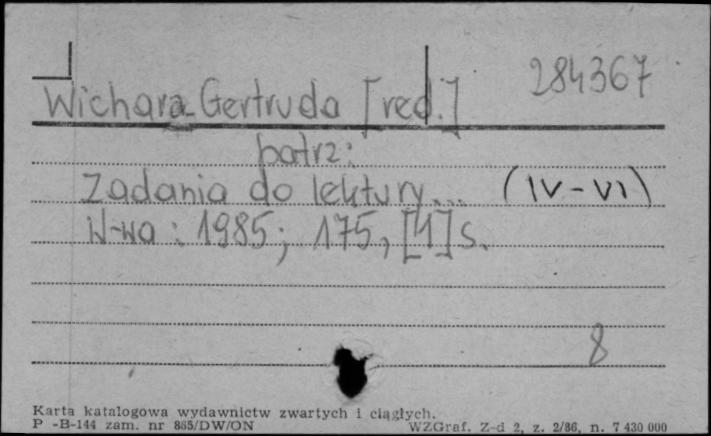 284367
Wichara Gertruda [red.]
patrz:
Zadania do lektury... (IV-VI)
W-wa: 1985; 175, [1] s.
8
Karta katalogowa wydawnictw zwartych i ciągłych.
P -B-144 zam. nr 865/DW/ON WZGraf. Z-d 2, z. 2/86, n. 7 430 000